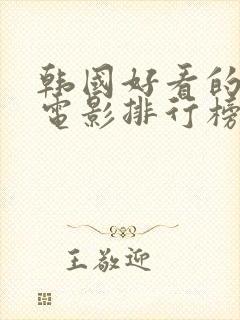 韩国好看的
电影排行榜
王敬迎